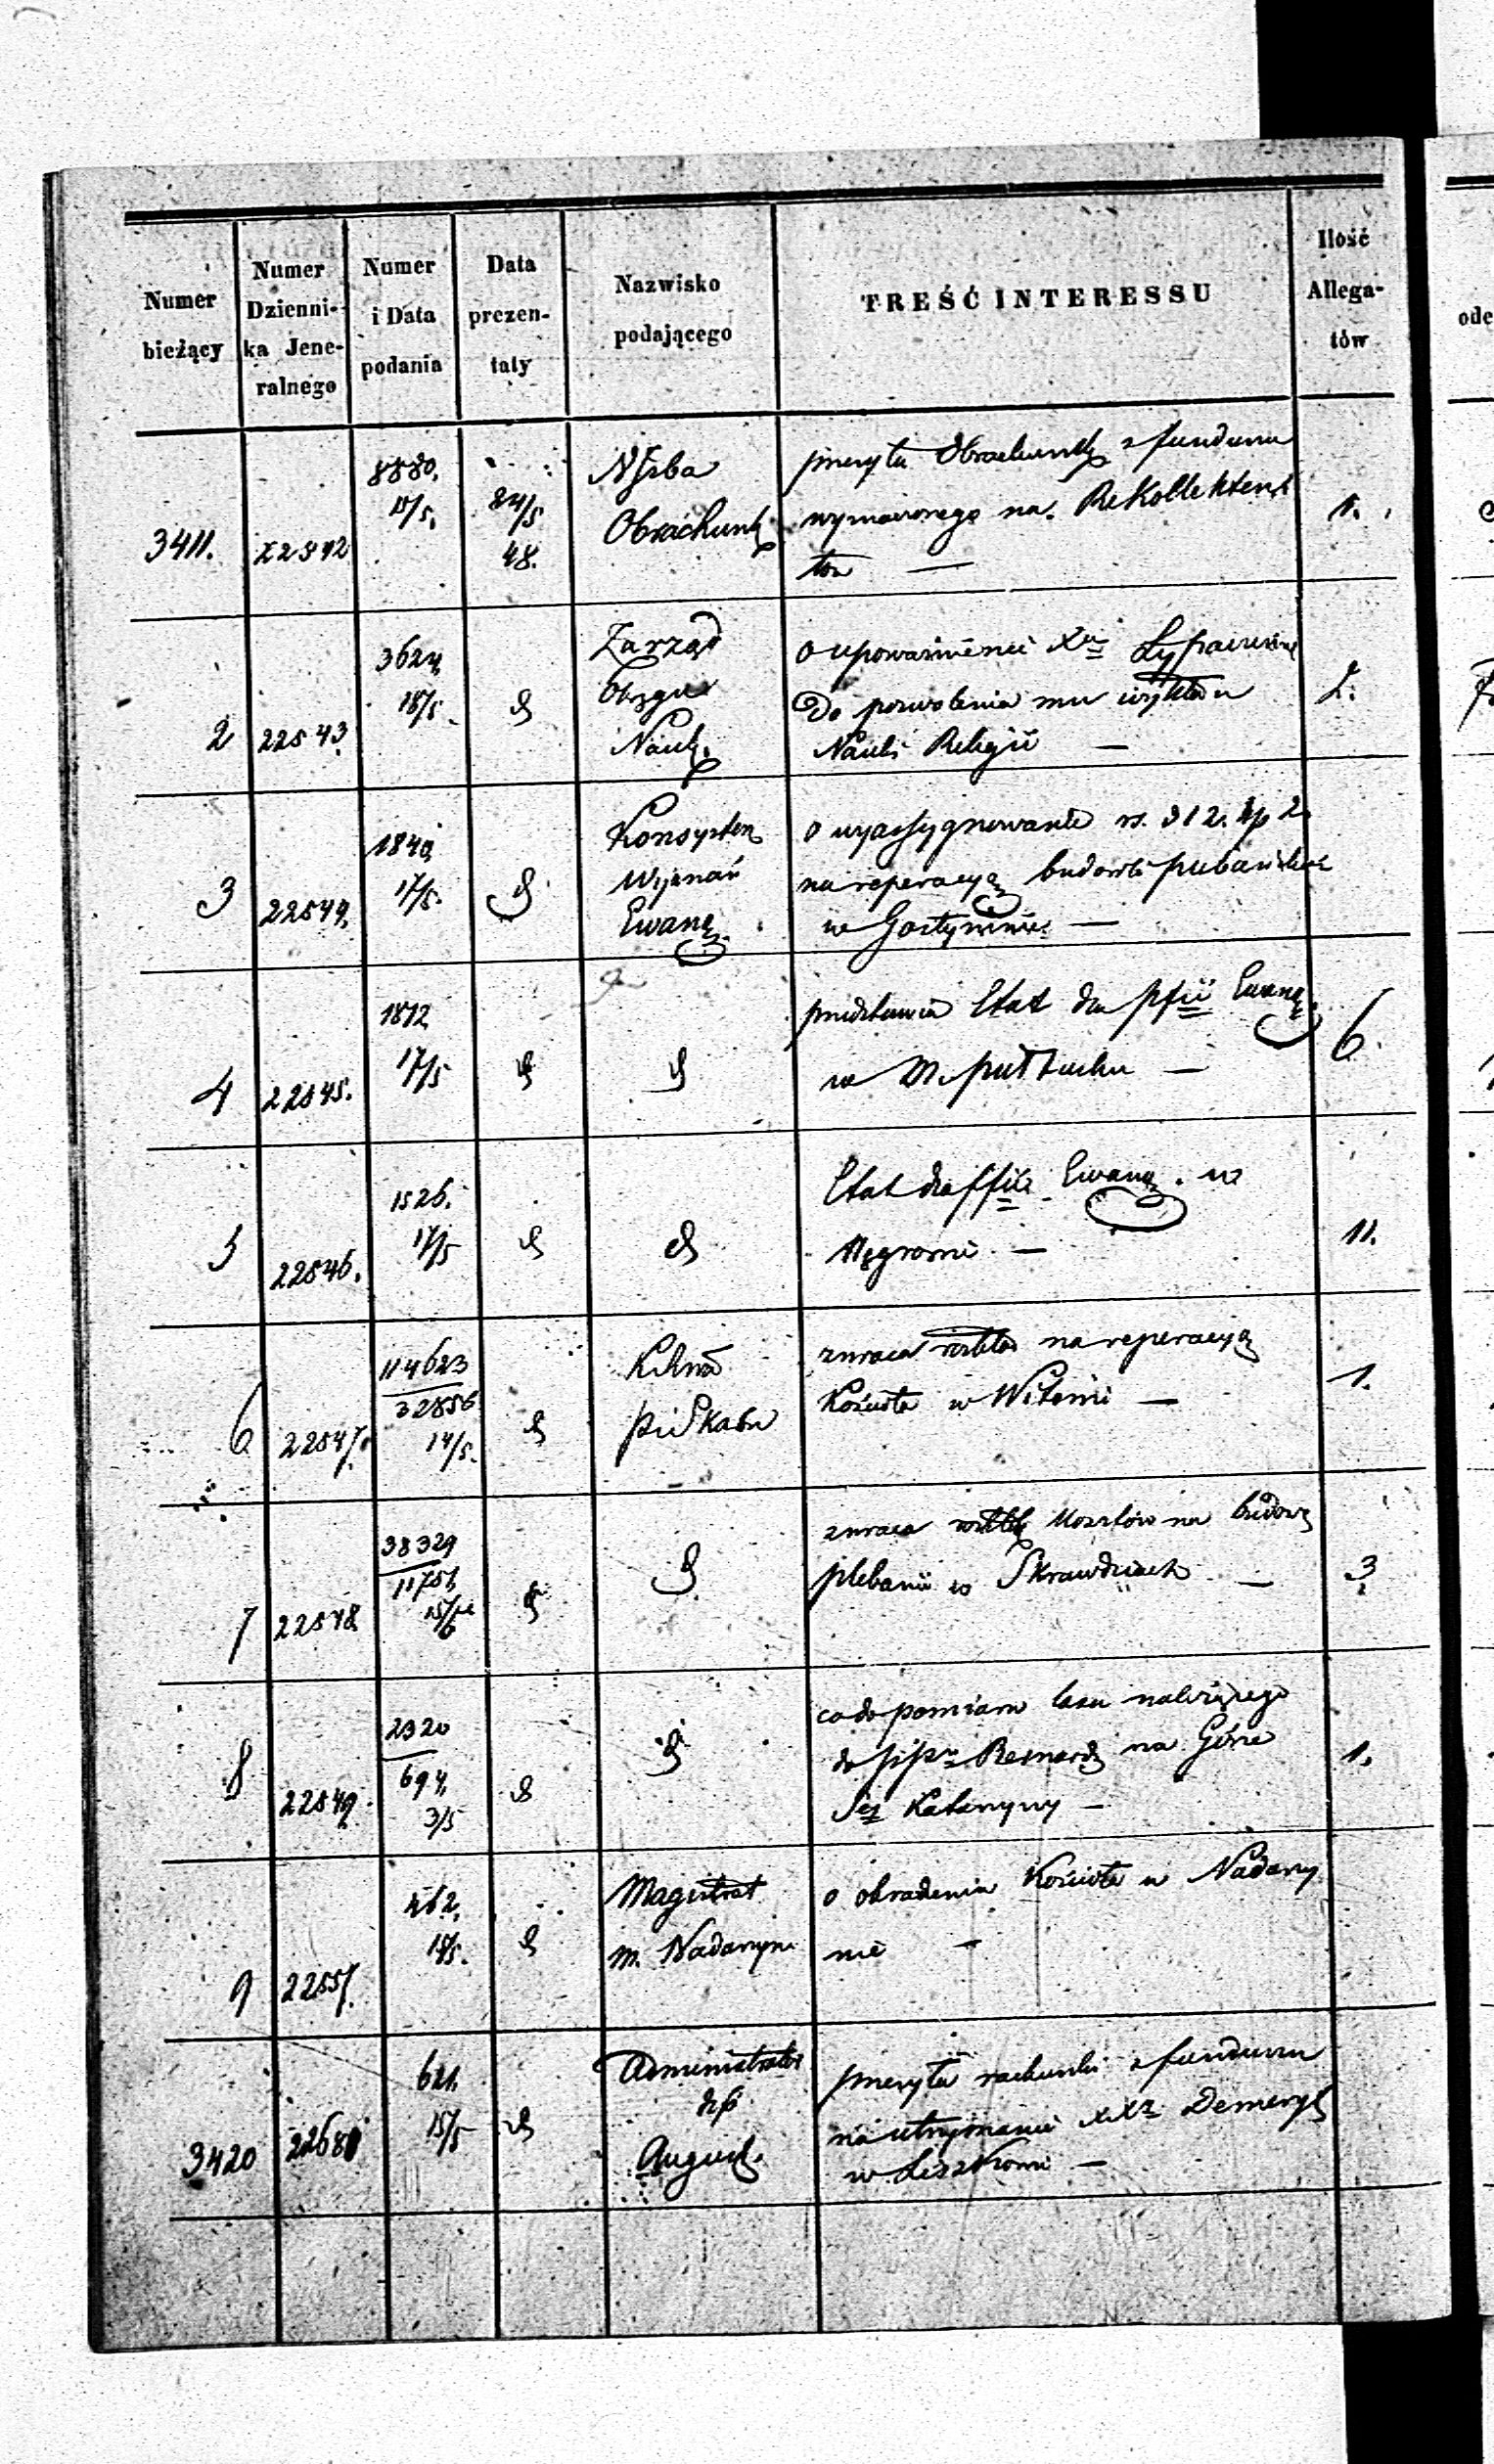 Numer bieżący
Numer Dzienni-ka Jene-ralnego
Numer i Data podania
Data prezen-taty
Nazwisko podającego
TREŚĆ INTERESSU
Ilość Allega-tów
3411.
22542
8880.
15/5.
24/5
48.
Izba
Obrachunk
przesyła Obrachunk z funduszu
na Rekollekten
tów —
1.
2
22543
3624
18/5.
Zarząd
Okręgu
Nauk.
o upoważnienie Xa
Do pozwolenia mu wykładu
Nauki Religii —
2.
3
22544
1840
17/5.
Konsystorz
Wyznań
Ewang.
o wyassygnowanie rs. 312. kp 2
na reperacyą budowli
w Gostyninie —
4
22545.
1812
17/5
przedstawia Etat dla pfii Ewang.
w M. Pułtusku —
6.
5
22546.
1526.
17/5
Etat dla pfii Ewang. w
Węgrowie —
11.
6
22547.
114623
32856
14/5.
zwraca rozkład na reperacyą
Kościoła w Witoni —
1.
7
22548
38329
11751
zwraca rozkład kosztów na budowę
plebanii w Skrwadzinach —
3
8
22549
2320
694
3/5
co do pomiaru lasu należącego
do Bernard na Górze
Katarzyny —
1.
9
22557.
462.
18/5.
Magistrat
m. Nadarzyn
o okradzeniu Kościoła w Nadarzy
nie —
3420
22680
621.
15/5
Administrator
dyć
August.
przesyła rachunki z funduszu
na utrzymanie XXzy Demeryt
w Liszkowie —
ode